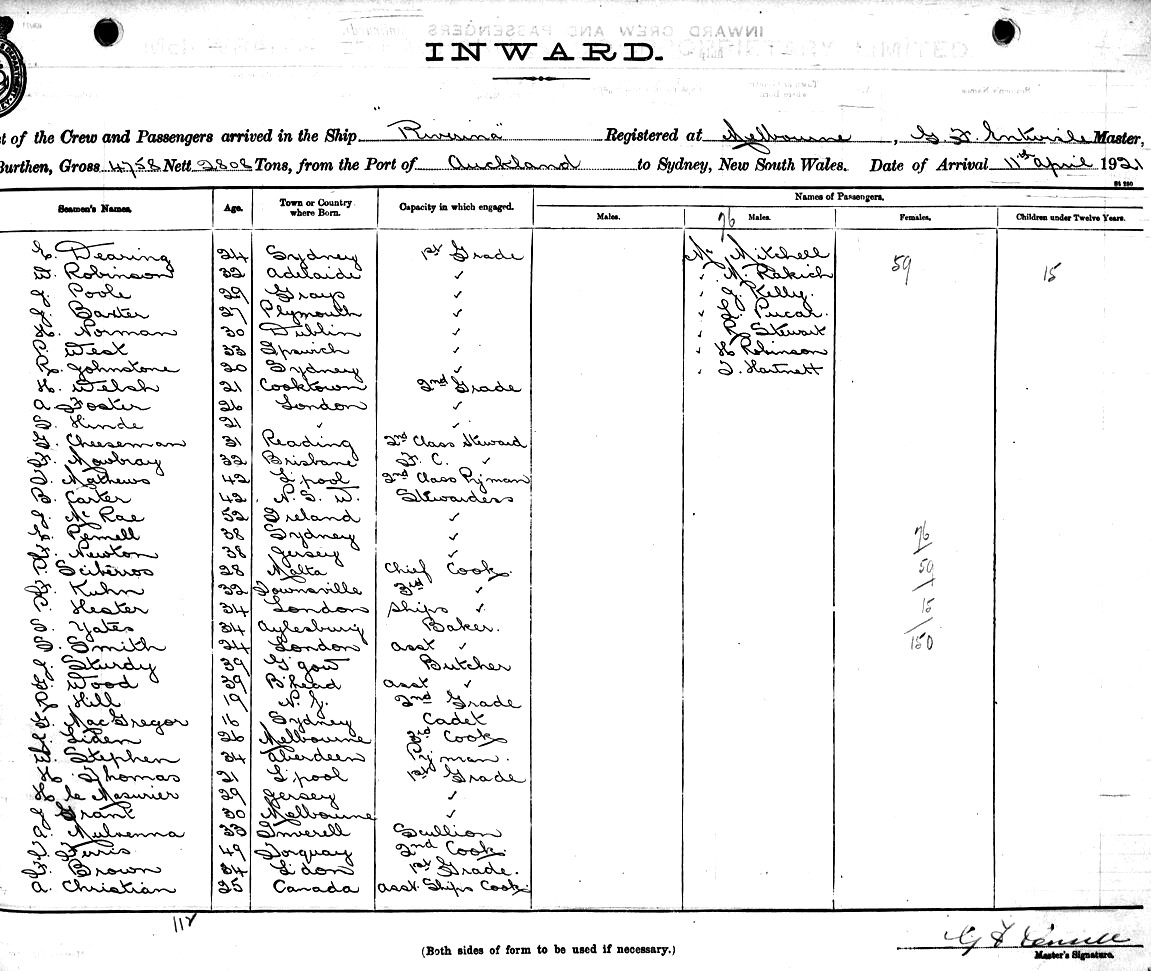 INWARD.
of the Crew and Passengers arrived in the Ship "Riverina" Registered at Melbourne, G. F. Master,
Burthen, Gross 4758 Nett 2808 Tons, from the Port of Auckland to Sydney, New South Wales. Date of Arrival 11th April 1921
Seamen's Names. Age. Town or Country where Born. Capacity in which engaged. Names of Passengers.
Males. 76 Males. Females. Children under Twelve Years.
Dearing 24 Sydney 1st Grade Mr Mitchell 59 15
Robinson 32 Adelaide ✓ " Rakich
Poole 29 Grays ✓ " J. Kelly.
Baxter 27 Plymouth ✓ " Pucar
Norman 30 Dublin ✓ " Stewart
West 33 Ipswich ✓ " H Robinson
R. Johnstone 20 Sydney ✓ " T. Hartnett
H. Welsh 21 Cooktown 2nd Grade
A. Foster 26 London ✓
Hinde 21 ✓ ✓
Cheeseman 31 Reading 2nd Class Steward
Mowbray 32 Brisbane F. C. ✓
Mathews 42 L'pool 2nd Class P'yman
Carter 42 N. S. W. Stewardess
McRae 52 Ireland ✓
Pernell 38 Sydney ✓ 76
Newton 38 Jersey ✓
Sciberros 28 Malta Chief Cook. 59
Kuhn 32 Townsville 3rd ✓
Hester 34 London Ships ✓ 15
Yates 34 Aylesburg Baker.
Smith 24 London asst ✓ 150
Sturdy 39 G'gow Butcher
Wood 39 B'head asst ✓
Hill 19 N. Z. 2nd Grade
MacGregor 16 Sydney Cadet
Liden 26 Melbourne 3rd Cook
Stephen 34 Aberdeen P'yman.
Thomas 21 L'pool 1st Grade
le Masurier 29 Jersey ✓
Grant 30 Melbourne ✓
Mulvenna 33 Inverell Scullion
Ferris 49 Torquay 2nd Cook.
Brown 34 L'don 1st Grade.
A. Christian 25 Canada asst. Ships Cook.
112
(Both sides of form to be used if necessary.)
Master's Signature.